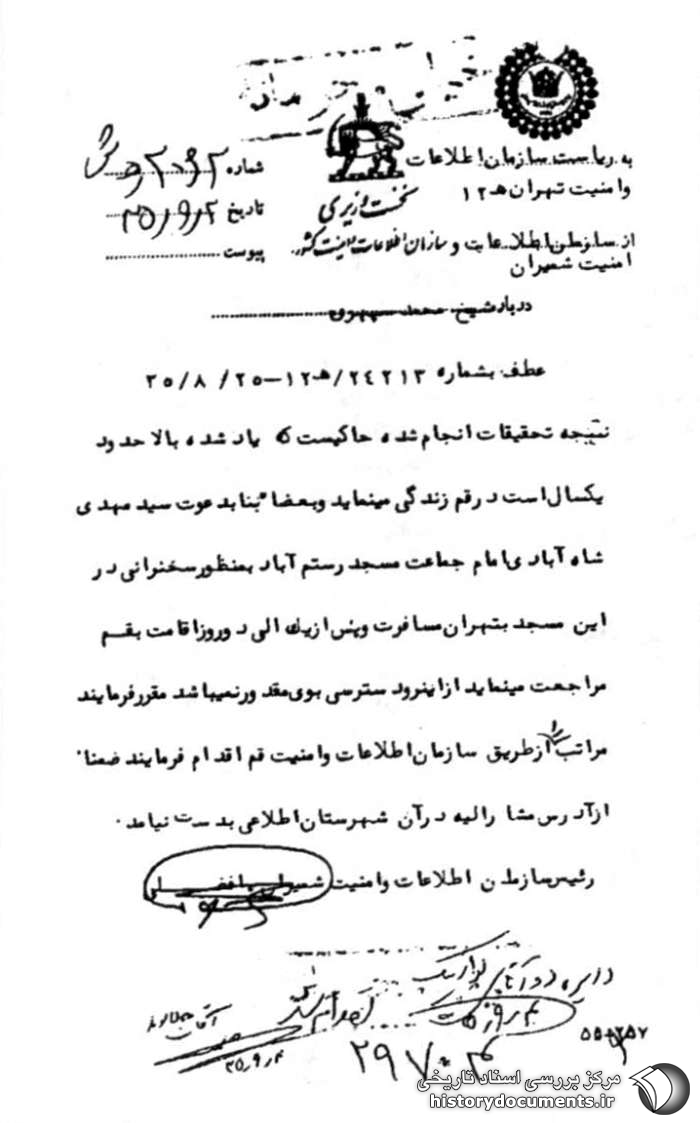 به ریاست سازمان اطلاعات
و امنیت تهران ه‍ ۱۲
نخست وزیری
سازمان اطلاعات و امنیت کشور
شماره
تاریخ ۳۵٫۹٫۲
پیوست
از سازمان اطلاعات و
امنیت شمیران
درباره شیخ محمد
عطف بشماره ۲۴۲۱۳/ه‍ ۱۲-۲۵/ ۸/ ۳۵
نتیجه تحقیقات انجام شده حاکیست که یاد شده بالا حدود
یکسال است در قم زندگی مینماید و بعضا" بنا بدعوت سید مهدی
شاه آبادی امام جماعت مسجد رستم آباد بمنظور سخنرانی در
این مسجد بتهران مسافرت و پس از یک الی دو روز اقامت بقم
مراجعت مینماید از اینرو دسترسی بوی مقدور نمیباشد مقرر فرمایند
مراتب را از طریق سازمان اطلاعات و امنیت قم اقدام فرمایند ضمنا"
از آدرس مشارالیه در آن شهرستان اطلاعی بدست نیامد.
رئیس سازمان اطلاعات و امنیت شمیران
اقدام
۳۵٫۹٫۴
مرکز بررسی اسناد تاریخی
historydocuments.ir